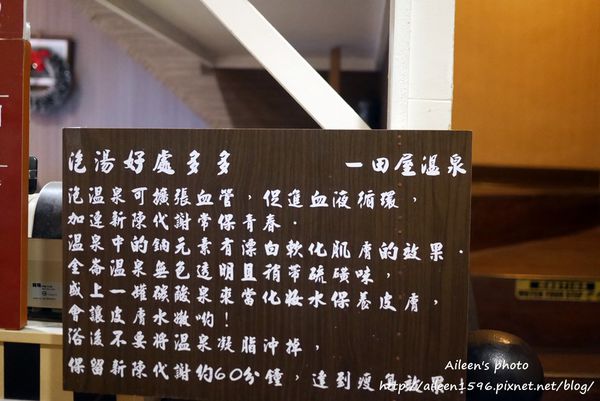 泡湯好處多多 一田屋溫泉
泡溫泉可擴張血管，促進血液循環，
加速新陳代謝常保青春．
溫泉中的鈉元素有漂白軟化肌膚的效果．
金崙溫泉無色透明且稍帶硫磺味，
盛上一罐碳酸泉來當化妝水保養皮膚，
會讓皮膚水嫩喲！
浴後不要將溫泉凝脂沖掉，
保留新陳代謝約60分鐘，達到瘦身效果
Aileen's photo
http://aileen1596.pixnet.net/blog/